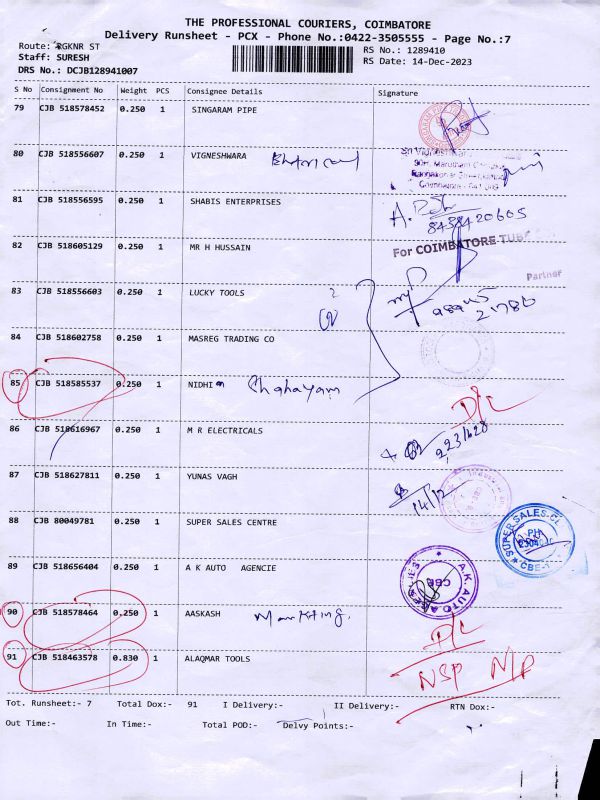 THE PROFESSIONAL COURIERS, COIMBATORE
Delivery Runsheet - PCX - Phone No.:0422-3505555 - Page No.:7
Route: RGKNR ST
RS No.: 1289410
Staff: SURESH
RS Date: 14-Dec-2023
DRS No.: DCJB128941007
S No Consignment No Weight PCS Consignee Details Signature
79 CJB 518578452 0.250 1 SINGARAM PIPE
80 CJB 518556607 0.250 1 VIGNESHWARA
81 CJB 518556595 0.250 1 SHABIS ENTERPRISES
8438420605
82 CJB 518605129 0.250 1 MR H HUSSAIN
For COIMBATORE TUB
Partner
83 CJB 518556603 0.250 1 LUCKY TOOLS
84 CJB 518602758 0.250 1 MASREG TRADING CO
85 CJB 518585537 0.250 1 NIDHI
D/C
86 CJB 518616967 0.250 1 M R ELECTRICALS
87 CJB 518627811 0.250 1 YUNAS VAGH
14/12
88 CJB 80049781 0.250 1 SUPER SALES CENTRE
SUPER SALES CE
PH
CBE-1
89 CJB 518656404 0.250 1 A K AUTO AGENCIE
A.K. AUTO AGENCIES
CBE
90 CJB 518578464 0.250 1 AASKASH Marketing.
D/C
91 CJB 518463578 0.830 1 ALAQMAR TOOLS
NSP N/P
Tot. Runsheet:- 7 Total Dox:- 91 I Delivery:- II Delivery:- RTN Dox:-
Out Time:- In Time:- Total POD:- Delvy Points:-